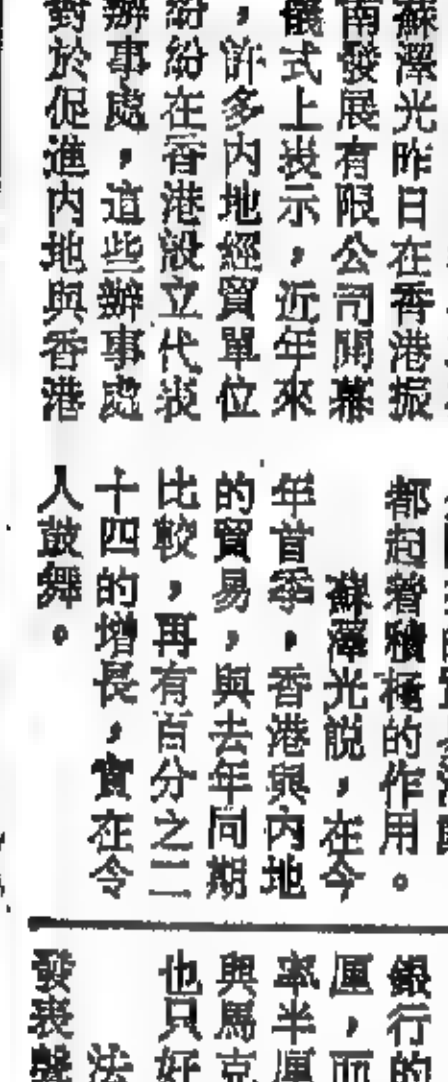 蘇澤光昨日在香港振
南發展有限公司開幕
儀式上表示，近年來
，許多內地經貿單位
紛紛在香港設立代表
辦事處，這些辦事處
對於促進內地與香港
都起着積極的作用。
蘇澤光說，在今
年首季，香港與內地
的貿易，與去年同期
比較，再有百分之二
十四的增長，實在令
人鼓舞。
銀行的
厘，而
率半厘
與馬克
也只好
法
發表聲